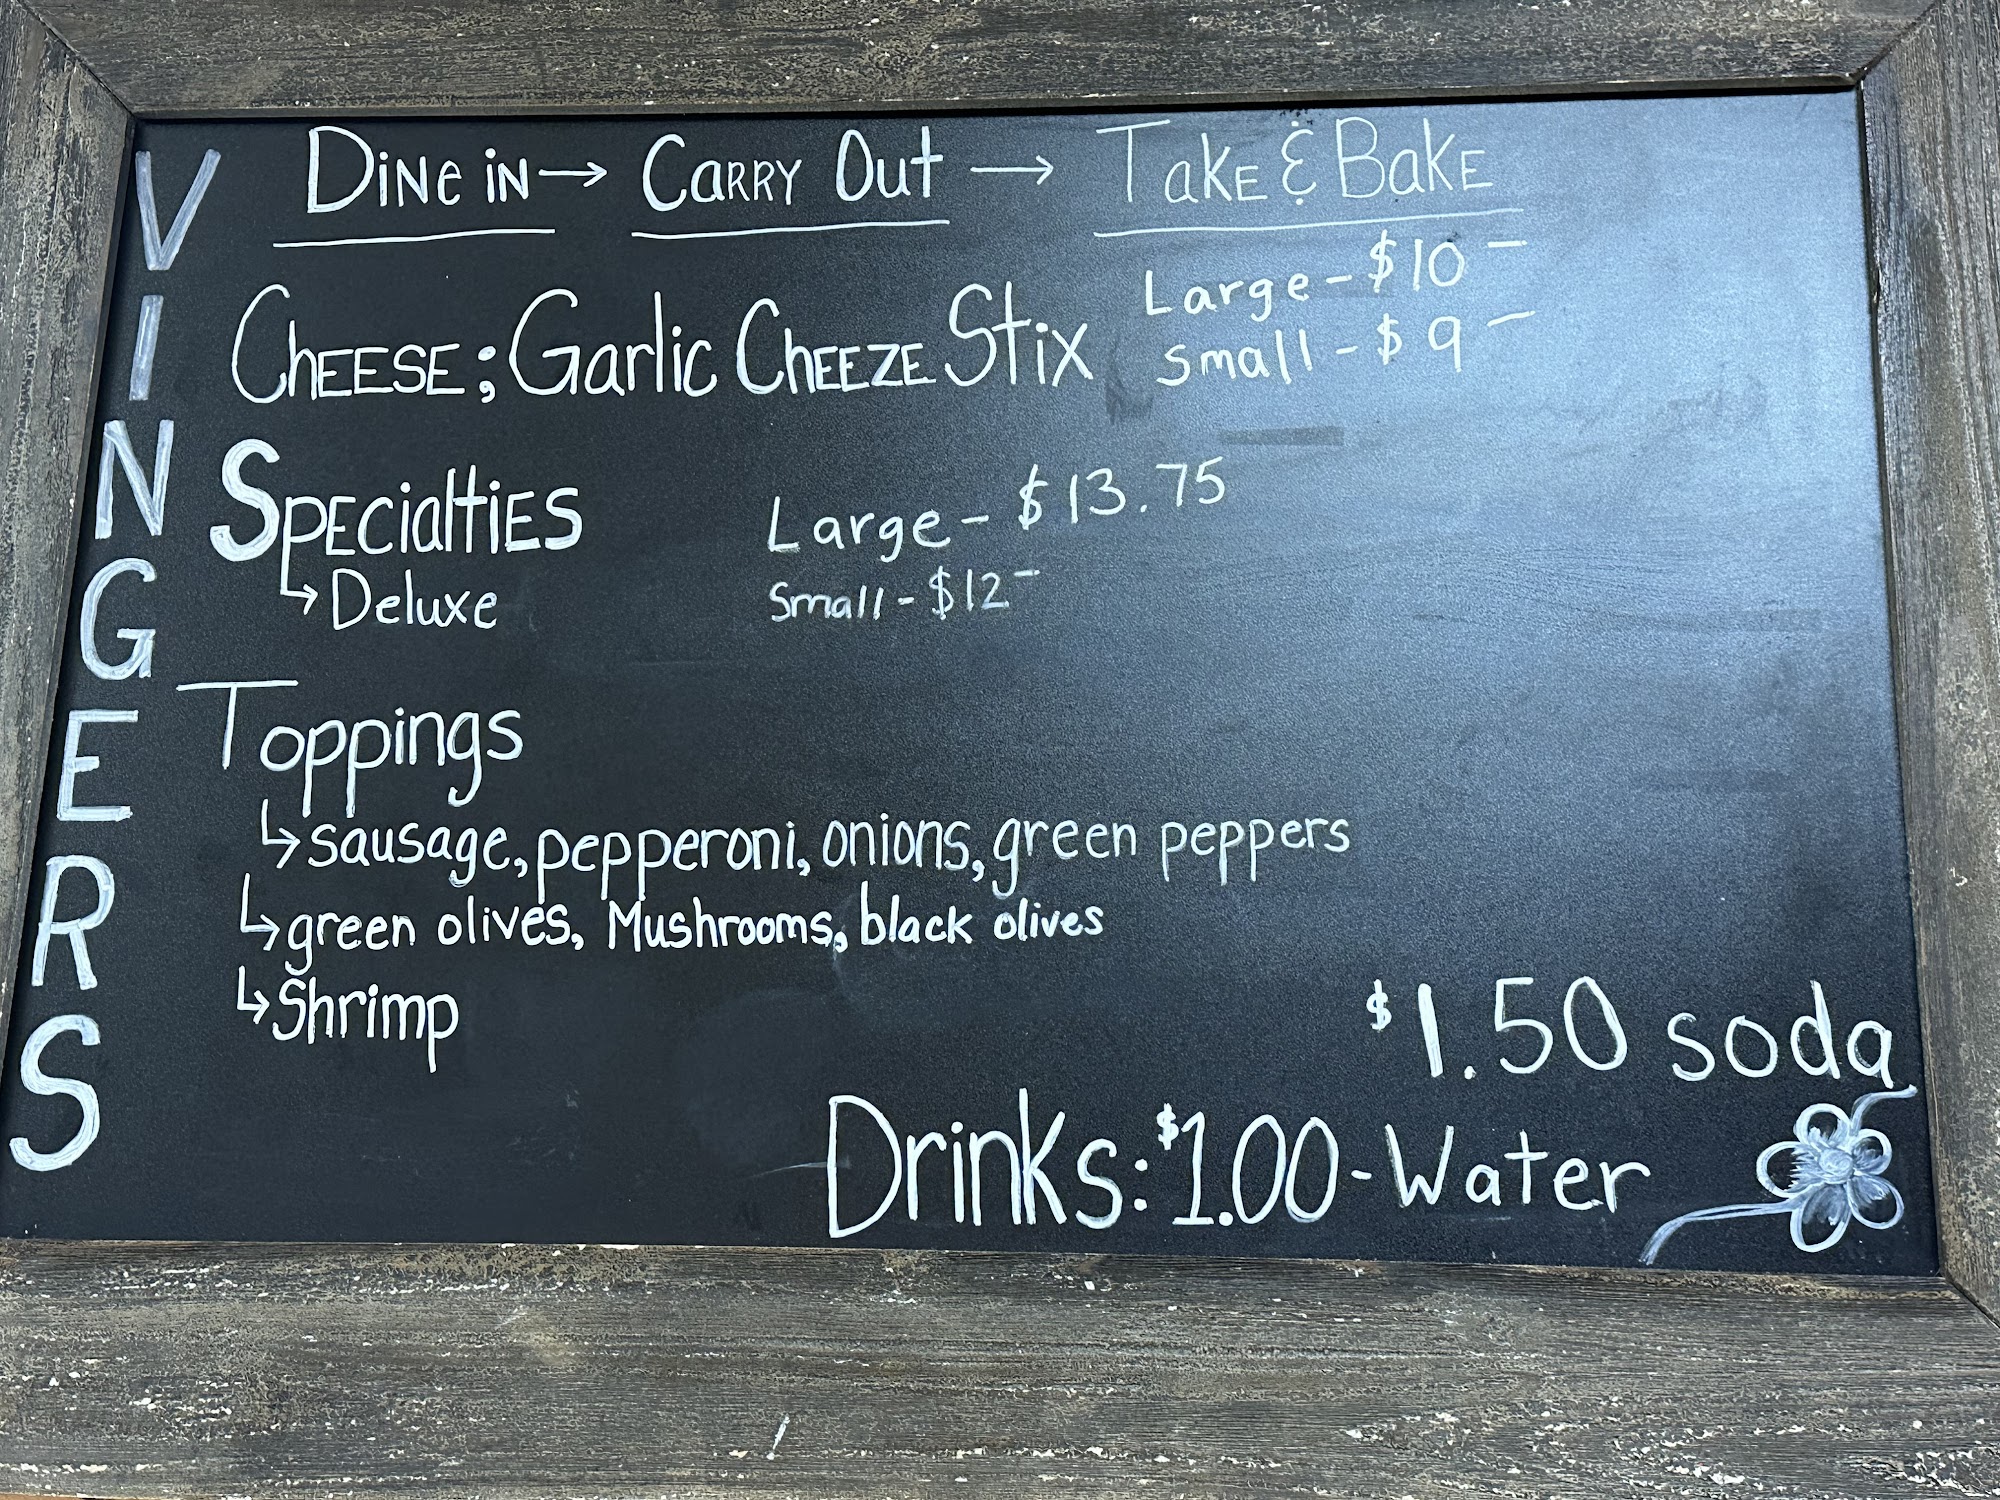 VINGERS
Dine in → Carry Out → Take & Bake
Cheese; Garlic Cheeze Stix Large - $10 -
Small - $9 -
Specialties Large - $13.75
↳ Deluxe Small - $12 -
Toppings
↳ sausage, pepperoni, onions, green peppers
↳ green olives, Mushrooms, black olives
↳ Shrimp
$1.50 soda
Drinks: $1.00 - Water